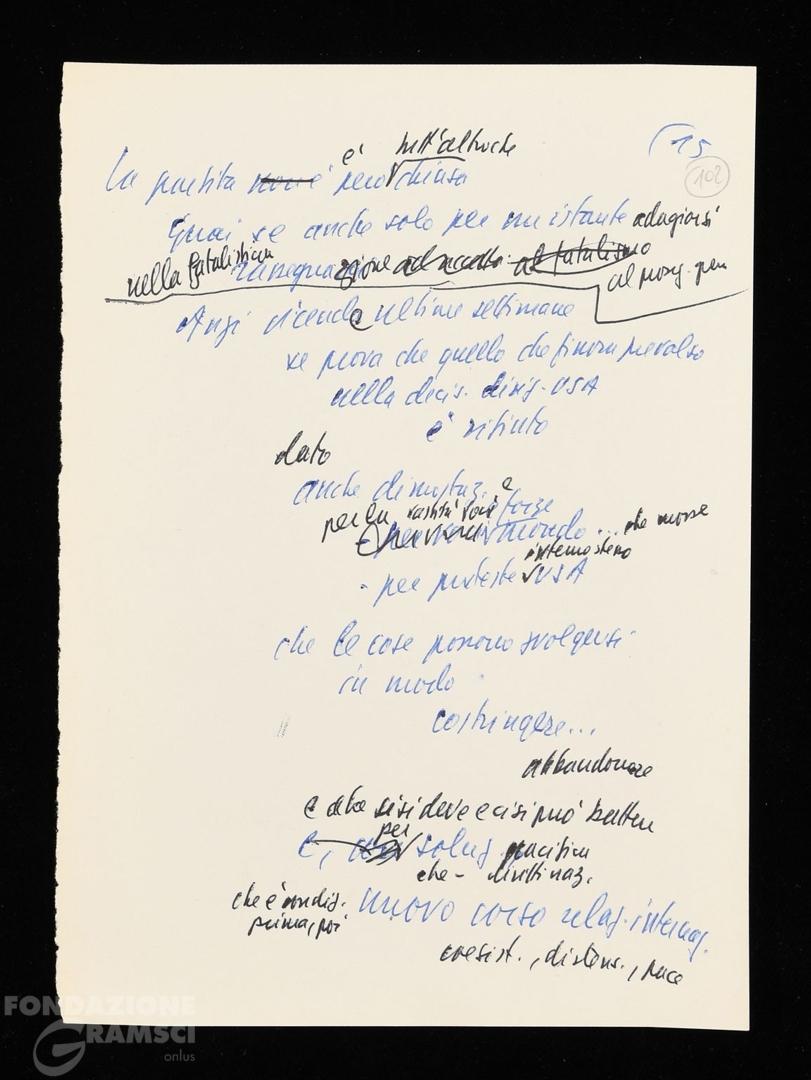 15
102
è tutt'altro che
La partita non è però chiusa
Guai se anche solo per un istante adagiarsi
nella fatalistica rassegnazione ad al fatalismo
al
Anzi vicende ultime settimane
se prova che quello che finora prevalso
nella decis. dirig. USA
è rifiuto
dato
anche dimostraz. e
per la vastità forze
mondo... che
interno stesso
- per proteste USA
che le cose possono svolgersi
in modo
costringere...
abbandonare
e che si si deve e ci si può battere
per
e, soluz. pacifica
che -
che è condiz.
prima, poi nuovo corso relaz. internaz.
coesist., distens., pace
FONDAZIONE
GRAMSCI
onlus